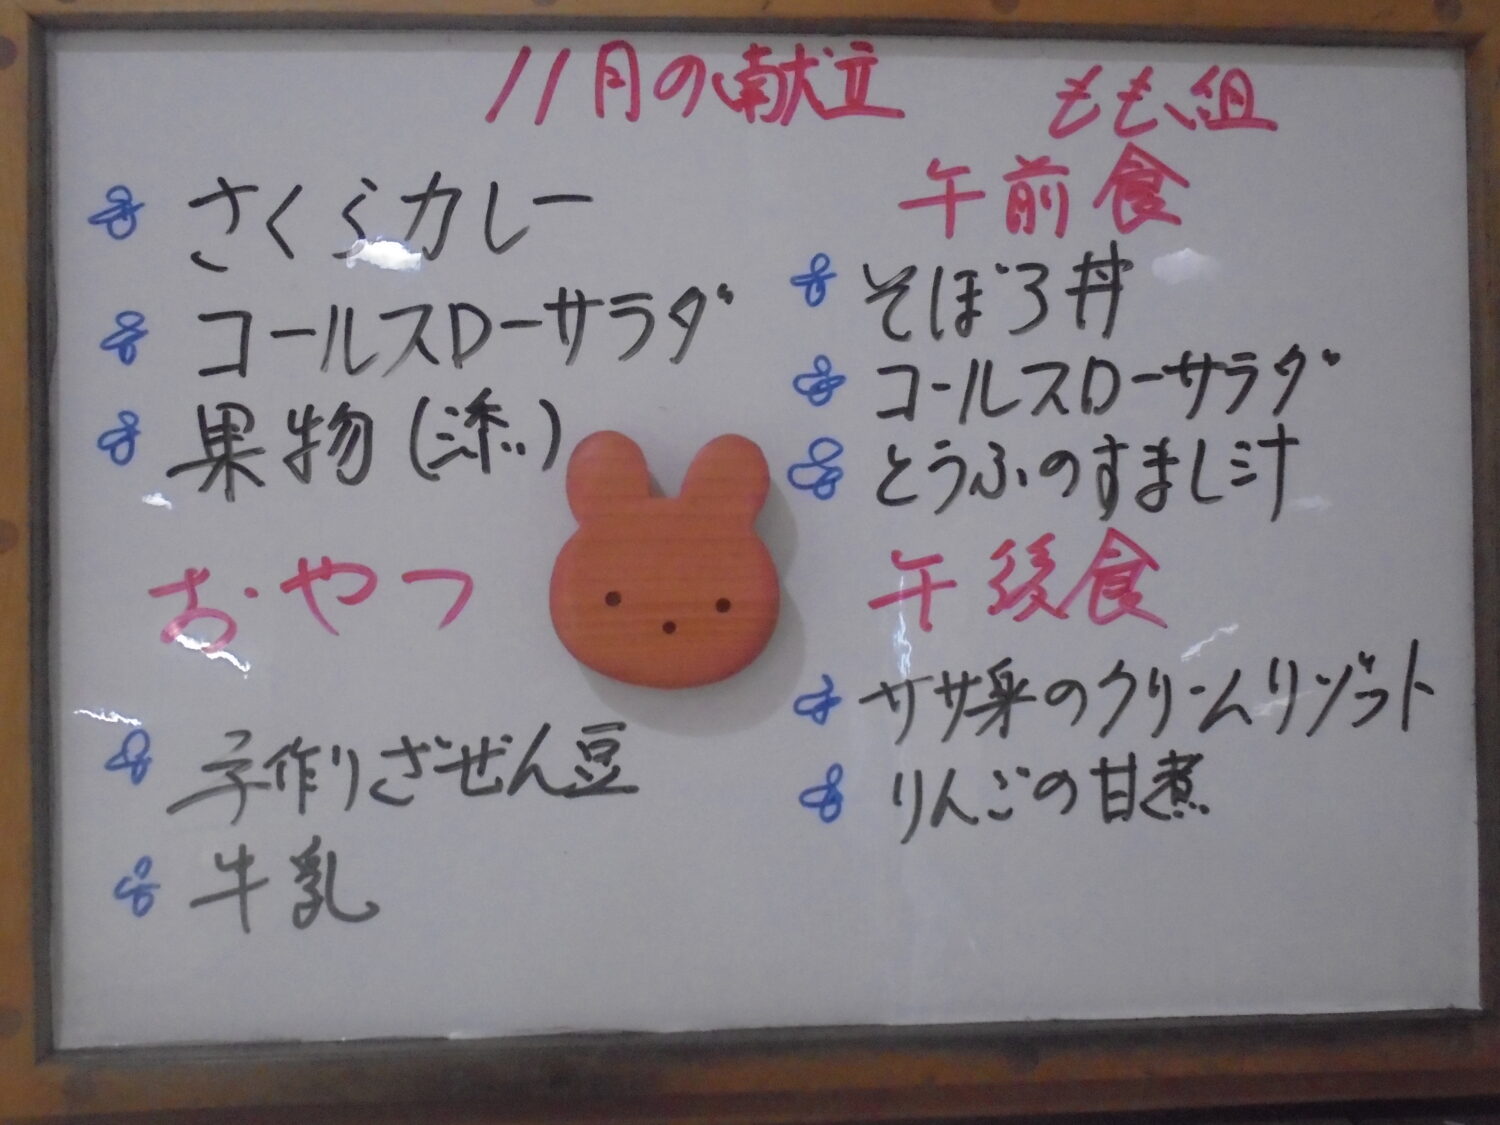 11月の献立
さくらカレー
コールスローサラダ
果物(添)
おやつ
手作りざぜん豆
牛乳
もも組
午前食
そぼろ丼
コールスローサラダ
とうふのすまし汁
午後食
ササ米のクリームリゾット
りんごの甘煮